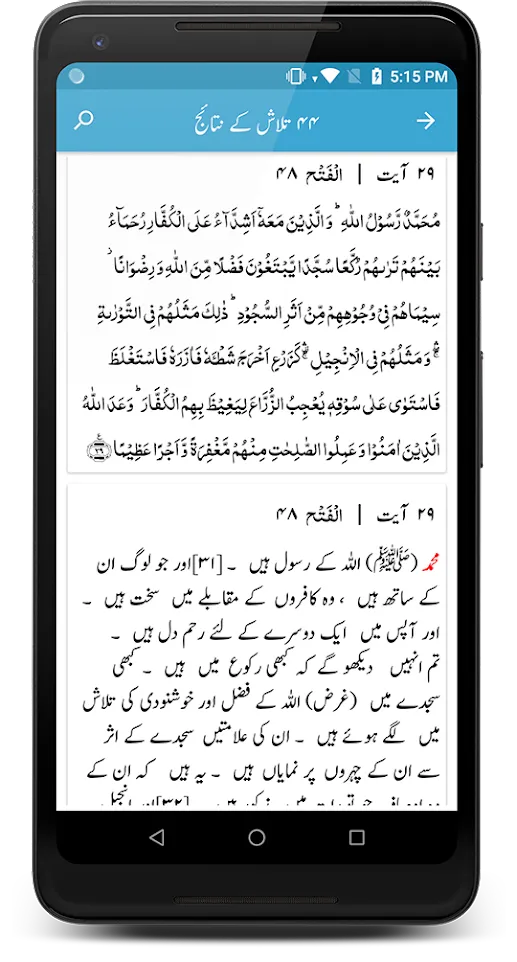 5:15 PM
۴۴ تلاش کے نتائج
۲۹ آیت | الْفَتْح ۴۸
مُحَمَّدٌ رَّسُوْلُ اللّٰهِ ؕ وَالَّذِیْنَ مَعَهٗۤ اَشِدَّآءُ عَلَی الْكُفَّارِ رُحَمَآءُ
بَیْنَهُمْ تَرٰىهُمْ رُكَّعًا سُجَّدًا یَّبْتَغُوْنَ فَضْلًا مِّنَ اللّٰهِ وَرِضْوَانًا ؗ
سِیْمَاهُمْ فِیْ وُجُوْهِهِمْ مِّنْ اَثَرِ السُّجُوْدِ ؕ ذٰلِكَ مَثَلُهُمْ فِی التَّوْرٰىةِ
ۛۖۚ وَمَثَلُهُمْ فِی الْاِنْجِیْلِ ۛ۫ۚ كَزَرْعٍ اَخْرَجَ شَطْـَٔهٗ فَاٰزَرَهٗ فَاسْتَغْلَظَ
فَاسْتَوٰی عَلٰی سُوْقِهٖ یُعْجِبُ الزُّرَّاعَ لِیَغِیْظَ بِهِمُ الْكُفَّارَ ؕ وَعَدَ اللّٰهُ
الَّذِیْنَ اٰمَنُوْا وَعَمِلُوا الصّٰلِحٰتِ مِنْهُمْ مَّغْفِرَةً وَّاَجْرًا عَظِیْمًا ۟۲۹
۲۹ آیت | الْفَتْح ۴۸
محمد (ﷺ) اللہ کے رسول ہیں ۔ [۳۱] اور جو لوگ ان
کے ساتھ ہیں ، وہ کافروں کے مقابلے میں سخت ہیں ۔
اور آپس میں ایک دوسرے کے لئے رحم دل ہیں ۔
تم انہیں دیکھو گے کہ کبھی رکوع میں ہیں ۔ کبھی
سجدے میں (غرض) اللہ کے فضل اور خوشنودی کی تلاش
میں لگے ہوئے ہیں ۔ ان کی علامتیں سجدے کے اثر
سے ان کے چہروں پر نمایاں ہیں ۔ یہ ہیں کہ ان کے